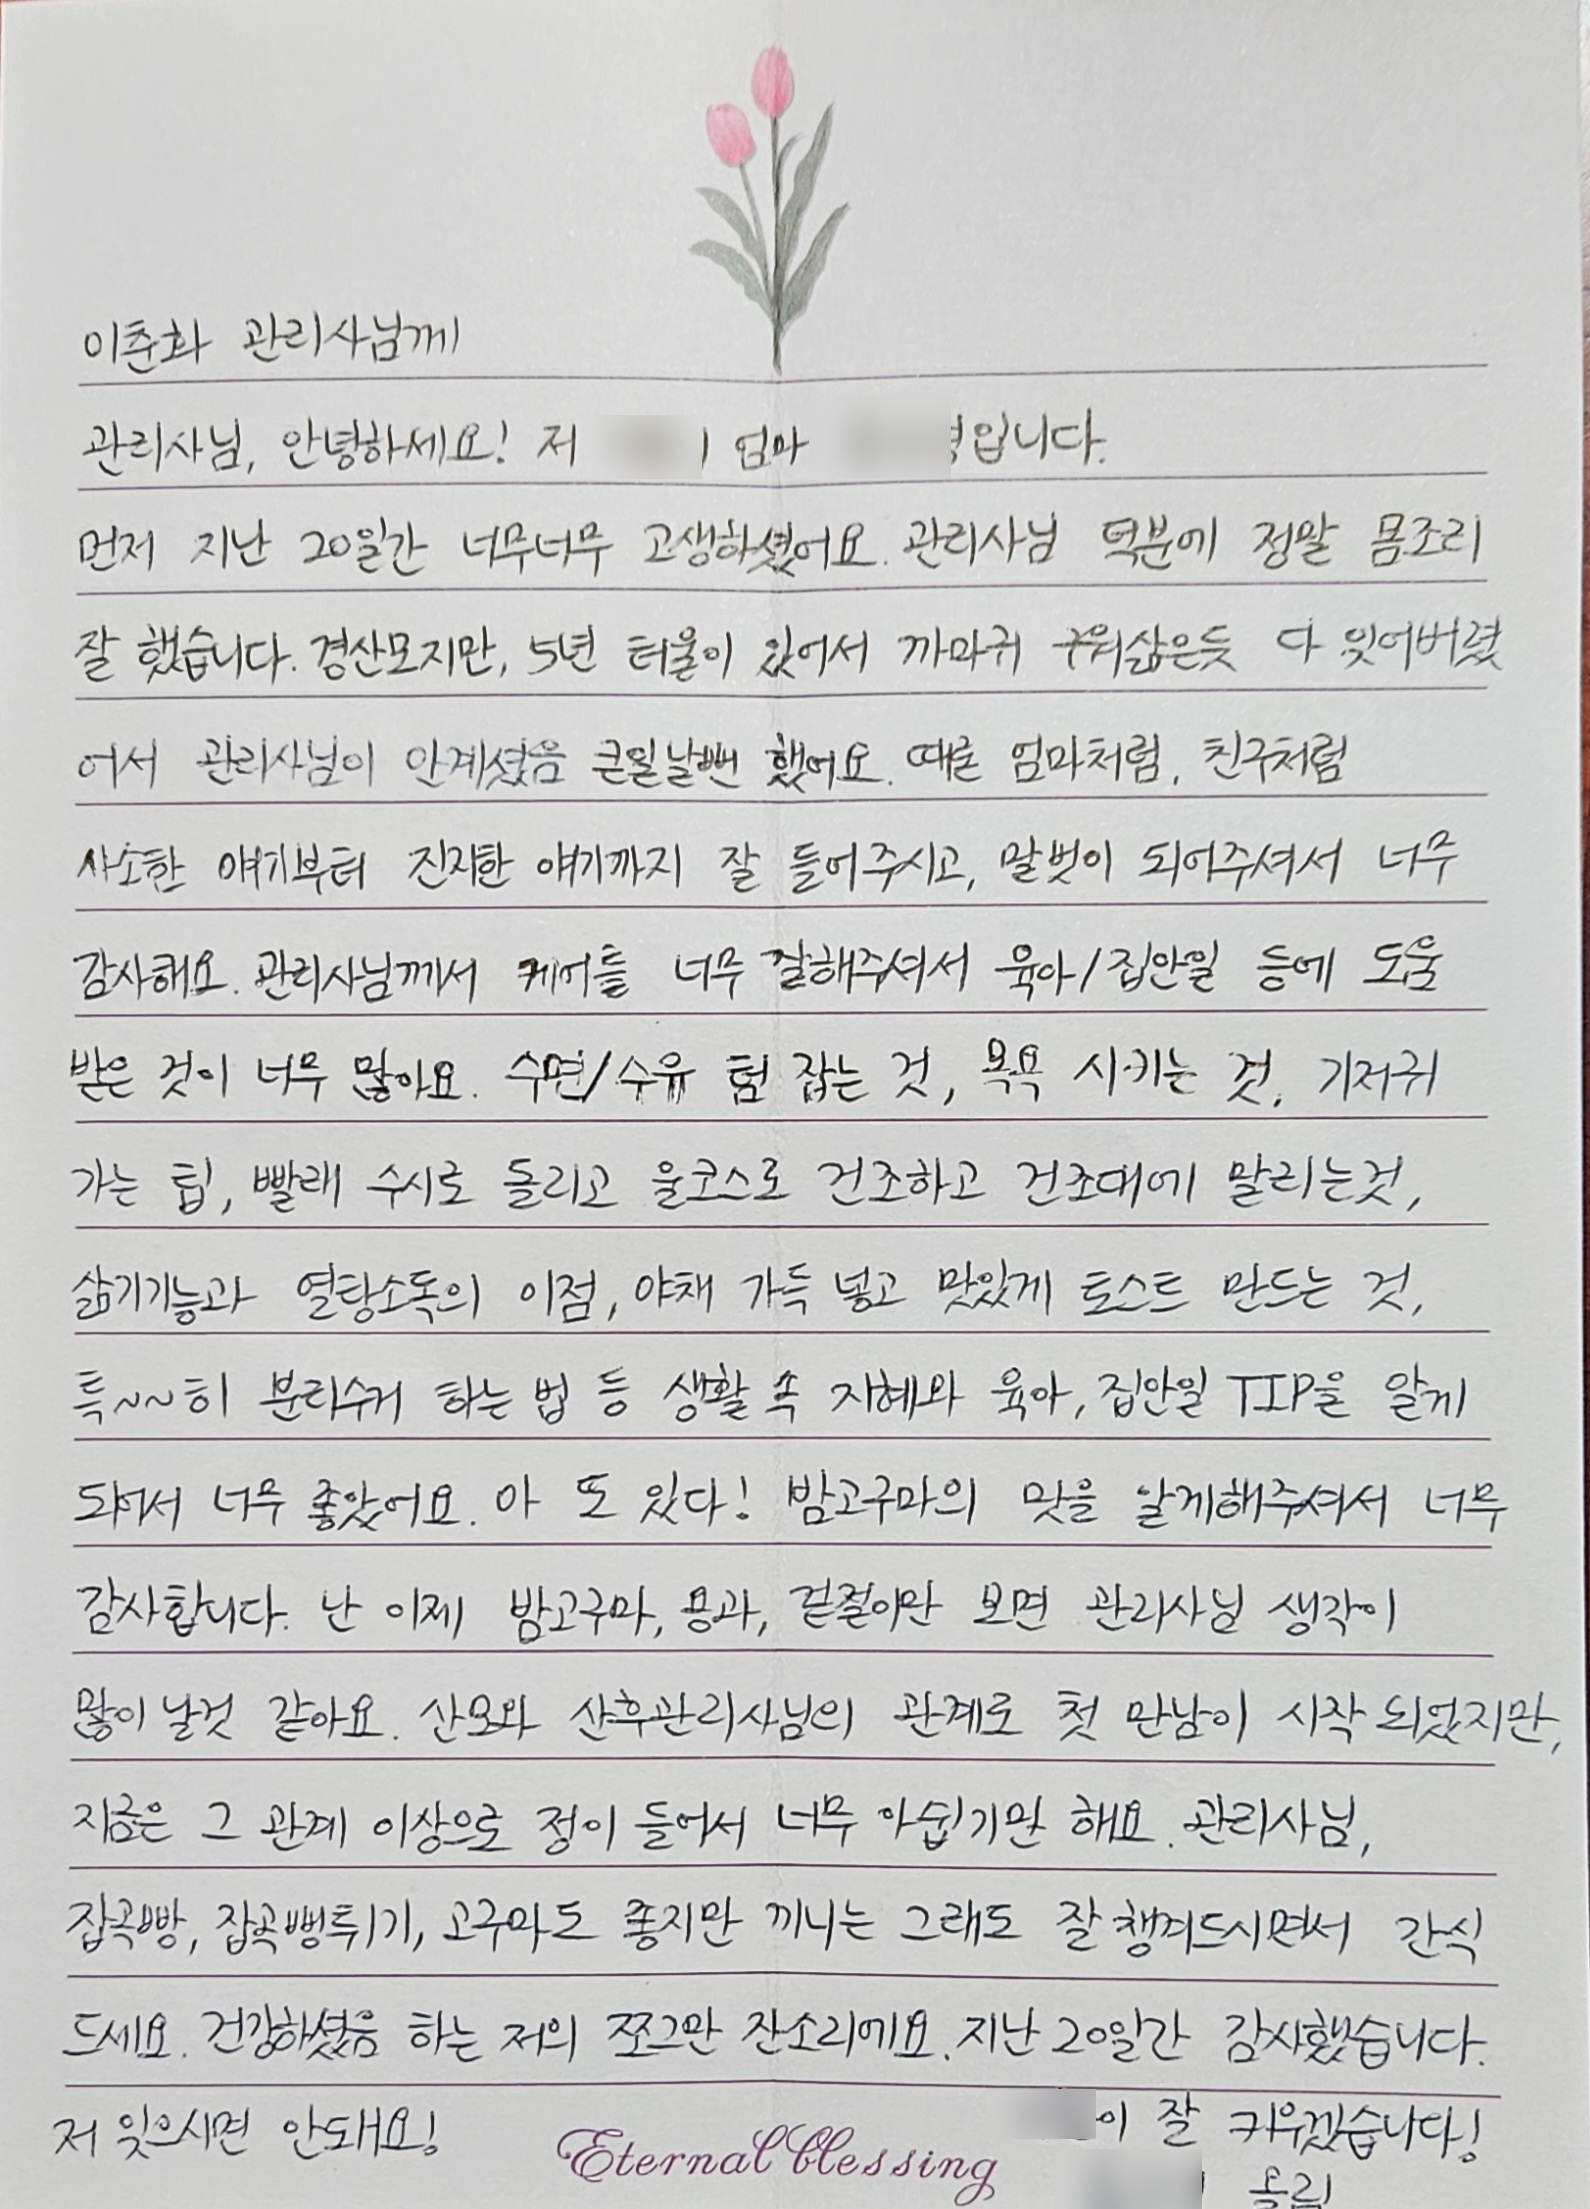 이춘화 관리사님께
관리사님, 안녕하세요! 저 엄마 입니다.
먼저 지난 20일간 너무너무 고생하셨어요. 관리사님 덕분에 정말 몸조리
잘 했습니다. 경산모지만, 5년 터울이 있어서 까마귀 구워삶은듯 다 잊어버렸
어서 관리사님이 안계셨음 큰일날뻔 했어요. 때론 엄마처럼, 친구처럼
사소한 얘기부터 진지한 얘기까지 잘 들어주시고, 말벗이 되어주셔서 너무
감사해요. 관리사님께서 케어를 너무 잘해주셔서 육아/집안일 등에 도움
받은 것이 너무 많아요. 수면/수유 텀 잡는 것, 목욕 시키는 것, 기저귀
가는 팁, 빨래 수시로 돌리고 울코스로 건조하고 건조대에 말리는것,
삶기기능과 열탕소독의 이점, 야채 가득 넣고 맛있게 토스트 만드는 것,
특~~히 분리수거 하는 법 등 생활 속 지혜와 육아, 집안일 TIP을 알게
되어서 너무 좋았어요. 아 또 있다! 밤고구마의 맛을 알게해주셔서 너무
감사합니다. 난 이제 밤고구마, 용과, 겉절이만 보면 관리사님 생각이
많이 날것 같아요. 산모와 산후관리사님의 관계로 첫 만남이 시작 되었지만,
지금은 그 관계 이상으로 정이 들어서 너무 아쉽기만 해요. 관리사님,
잡곡빵, 잡곡뻥튀기, 고구마도 좋지만 끼니는 그래도 잘 챙겨드시면서 간식
드세요. 건강하셨음 하는 저의 쪼그만 잔소리에요. 지난 20일간 감사했습니다.
저 잊으시면 안돼요! 이 잘 키우겠습니다!
Eternal blessing
올림